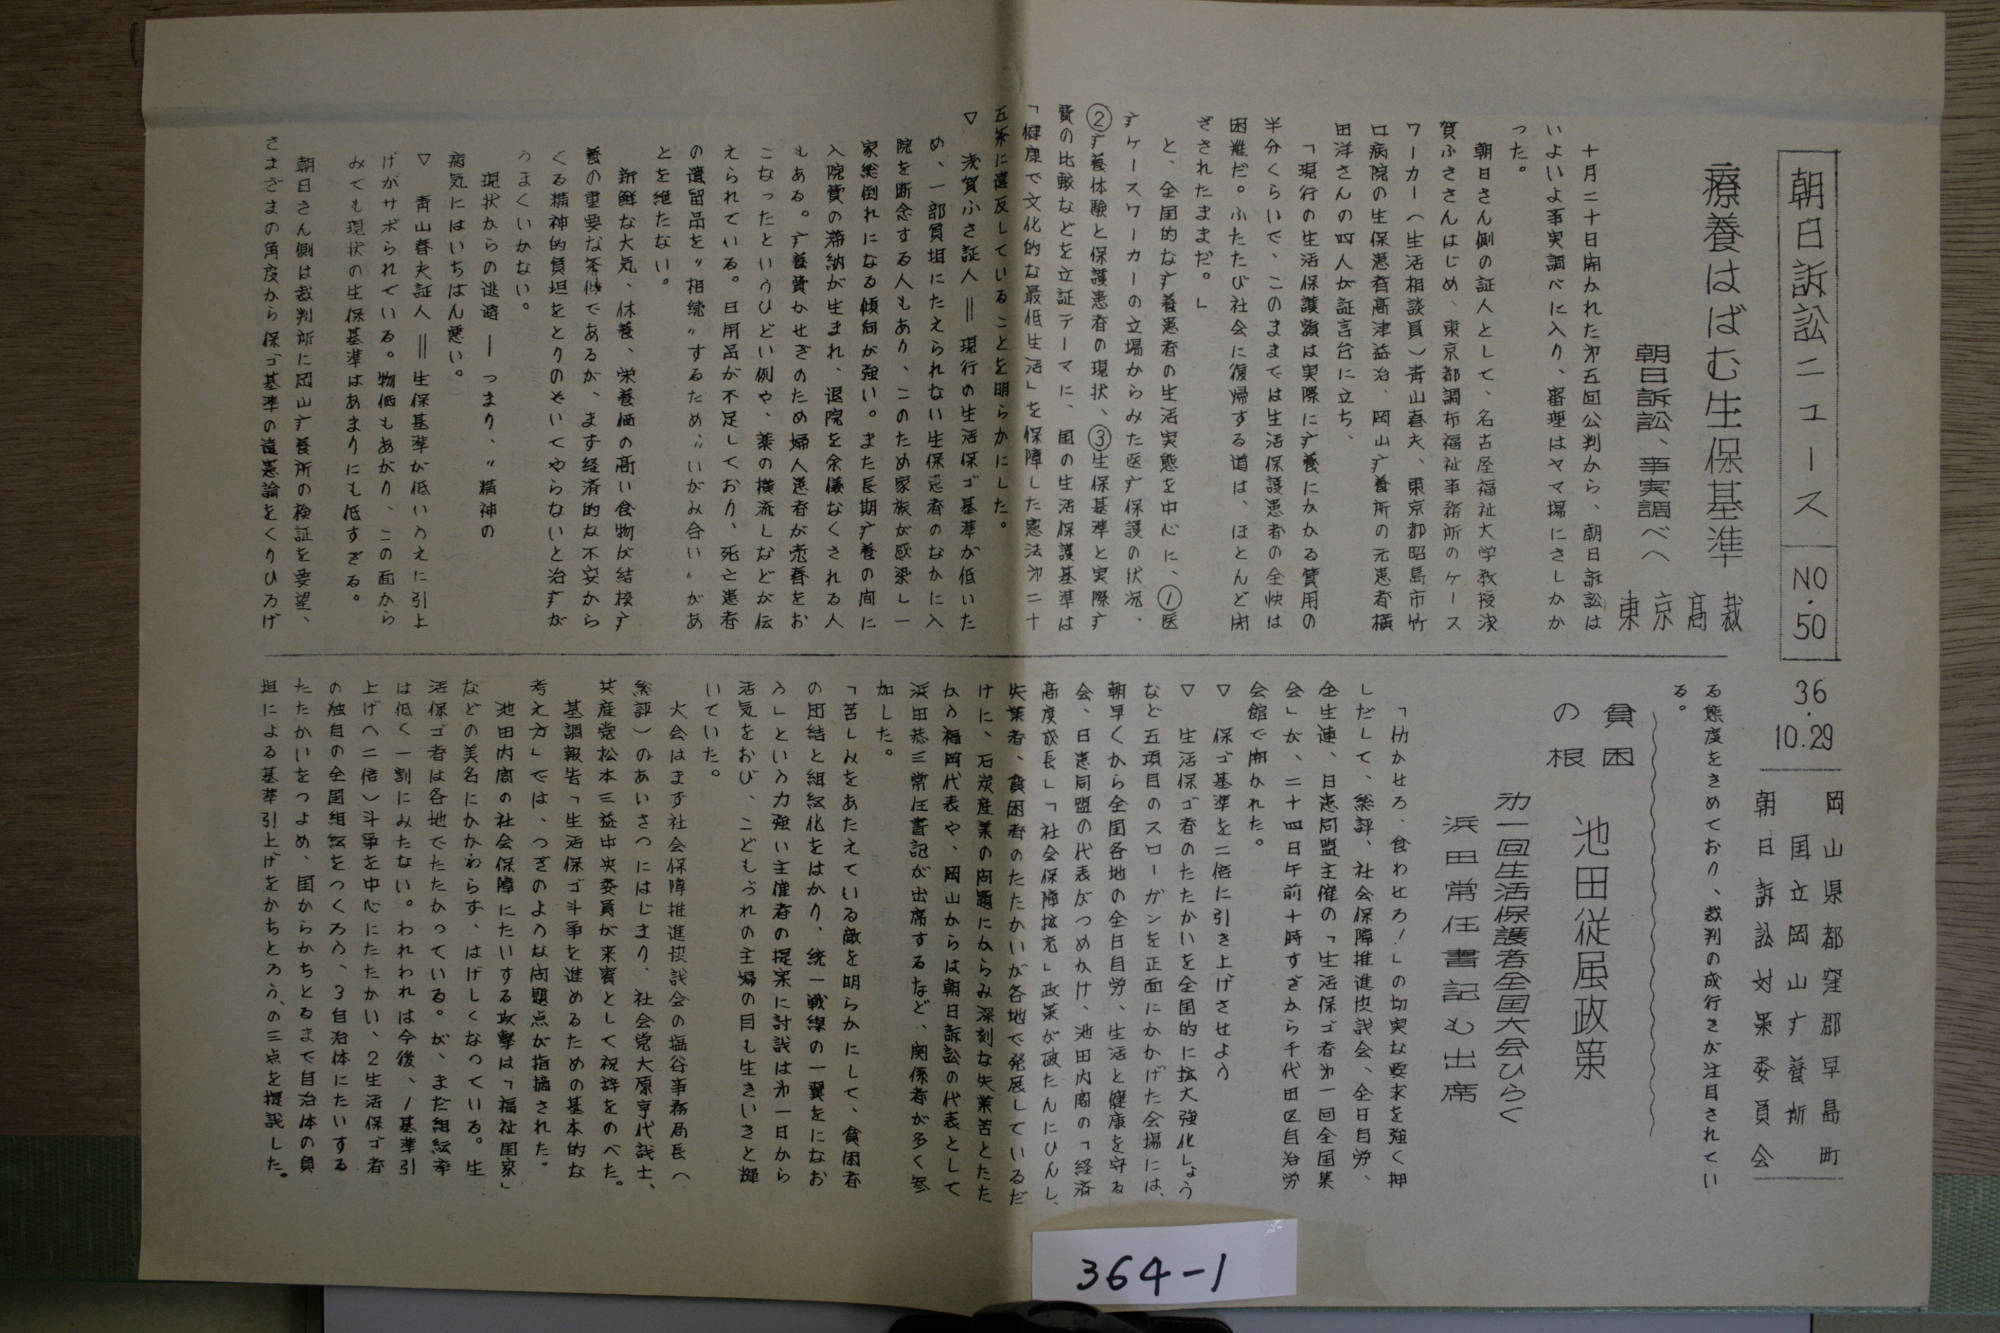 朝日訴訟ニュース
NO.50
36.10.29
岡山県都窪郡早島町
国立岡山疒養所
朝日訴訟対策委員会
療養はばむ生保基準
朝日訴訟、事実調べへ
東京高裁
十月二十日開かれた第五回公判から、朝日訴訟は
いよいよ事実調べに入り、審理はヤマ場にさしかか
った。
朝日さん側の証人として、名古屋福祉大学教授浅
賀ふささんはじめ、東京都調布福祉事務所のケース
ワーカー（生活相談員）青山春夫、東京都昭島市竹
口病院の生保患者高津益治、岡山疒養所の元患者横
田洋さんの四人が証言台に立ち、
「現行の生活保護費は実際に疒養にかかる費用の
半分くらいで、このままでは生活保護患者の全快は
困難だ。ふたたび社会に復帰する道は、ほとんど閉
ざされたままだ。」
と、全国的な疒養患者の生活実態を中心に、①医
疒ケースワーカーの立場からみた医疒保護の状況、
②疒養体験と保護患者の現状、③生保基準と実際疒
費の比較などを立証テーマに、国の生活保護基準は
「健康で文化的な最低生活」を保障した憲法第二十
五条に違反していることを明らかにした。
▽　浅賀ふさ証人＝現行の生活保ゴ基準が低いた
め、一部負担にたえられない生保患者のなかに入
院を断念する人もあり、このため家族が感染し一
家総倒れになる傾向が強い。また長期疒養の間に
入院費の滞納が生まれ、退院を余儀なくされる人
もある。疒養費かせぎのため婦人患者が売春をお
こなったというひどい例や、薬の横流しなどが伝
えられている。日用品が不足しており、死亡患者
の遺留品を〃相続〃するため〃いがみ合い〃があ
とを絶たない。
新鮮な大気、休養、栄養価の高い食物が結核疒
養の重要な条件であるが、まず経済的な不安から
くる精神的負担をとりのぞいてやらないと治疒が
うまくいかない。
現状からの逃避―つまり、〃精神の
病気にはいちばん悪い。
▽　青山春夫証人＝生保基準が低いうえに引上
げがサボられている。物価もあがり、この面から
みても現状の生保基準はあまりにも低すぎる。
朝日さん側は裁判所に岡山疒養所の検証を要望、
さまざまの角度から保ゴ基準の違憲論をくりひろげ
る態度をきめており、裁判の成行きが注目されてい
る。
貧困の根
池田従属政策
第一回生活保護者全国大会ひらく
浜田常任書記も出席
「仂かせろ、食わせろ！」の切実な要求を強く押
しだして、総評、社会保障推進協議会、全日自労、
全生連、日患同盟主催の「生活保ゴ者第一回全国集
会」が、二十四日午前十時すぎから千代田区自治労
会館で開かれた。
▽　保ゴ基準を二倍に引き上げさせよう
▽　生活保ゴ者のたたかいを全国的に拡大強化しよう
など五項目のスローガンを正面にかかげた会場には、
朝早くから全国各地の全日自労、生活と健康を守る
会、日患同盟の代表がつめかけ、池田内閣の「経済
高度成長」「社会保障拡充」政策が破たんにひんし、
失業者、貧困者のたたかいが各地で発展しているだ
けに、石炭産業の問題にからみ深刻な失業苦とたた
かう福岡代表や、岡山からは朝日訴訟の代表として
浜田恭三常任書記が出席するなど、関係者が多く参
加した。
「苦しみをあたえている敵を明らかにして、貧困者
の団結と組織化をはかり、統一戦線の一翼をになお
う」という力強い主催者の提案に討議は第一日から
活気をおび、こどもづれの主婦の目も生きいきと輝
いていた。
大会はまず社会保障推進協議会の塩谷事務局長（
総評）のあいさつにはじまり、社会党大原亨代議士、
共産党松本三益中央委員が来賓として祝辞をのべた。
基調報告「生活保ゴ斗争を進めるための基本的な
考え方」では、つぎのような問題点が指摘された。
池田内閣の社会保障にたいする攻撃は「福祉国家」
などの美名にかかわらず、はげしくなっている。生
活保ゴ者は各地でたたかっている。が、まだ組織率
は低く一割にみたない。われわれは今後、１基準引
上げ（二倍）斗争を中心にたたかい、２生活保ゴ者
の独自の全国組織をつくろう、３自治体にたいする
たたかいをつよめ、国からかちとるまで自治体の負
担による基準引上げをかちとろう、の三点を提議した。
364-1